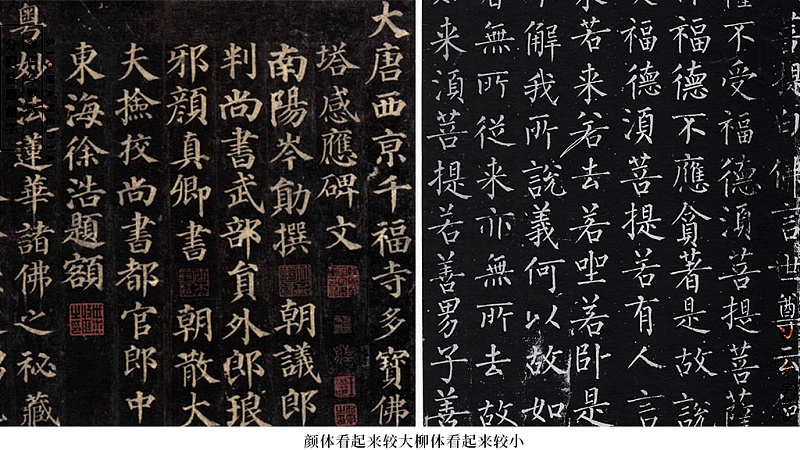 大唐西京千福寺多寶佛
塔感應碑文
南陽岑勛撰 朝議郎
判尚書武部員外郎琅
邪顏真卿書 朝散大
夫撿挍尚書都官郎中
東海徐浩題額
粵妙法蓮華諸佛之秘藏
菩提白佛言世尊云何
薩不受福德湏菩提菩薩
福德不應貪著是故說
福德湏菩提若有人言
若来若去若坐若卧是
解我所說義何以故如
無所從来亦無所去故
来湏菩提若善男子善
颜体看起来较大柳体看起来较小